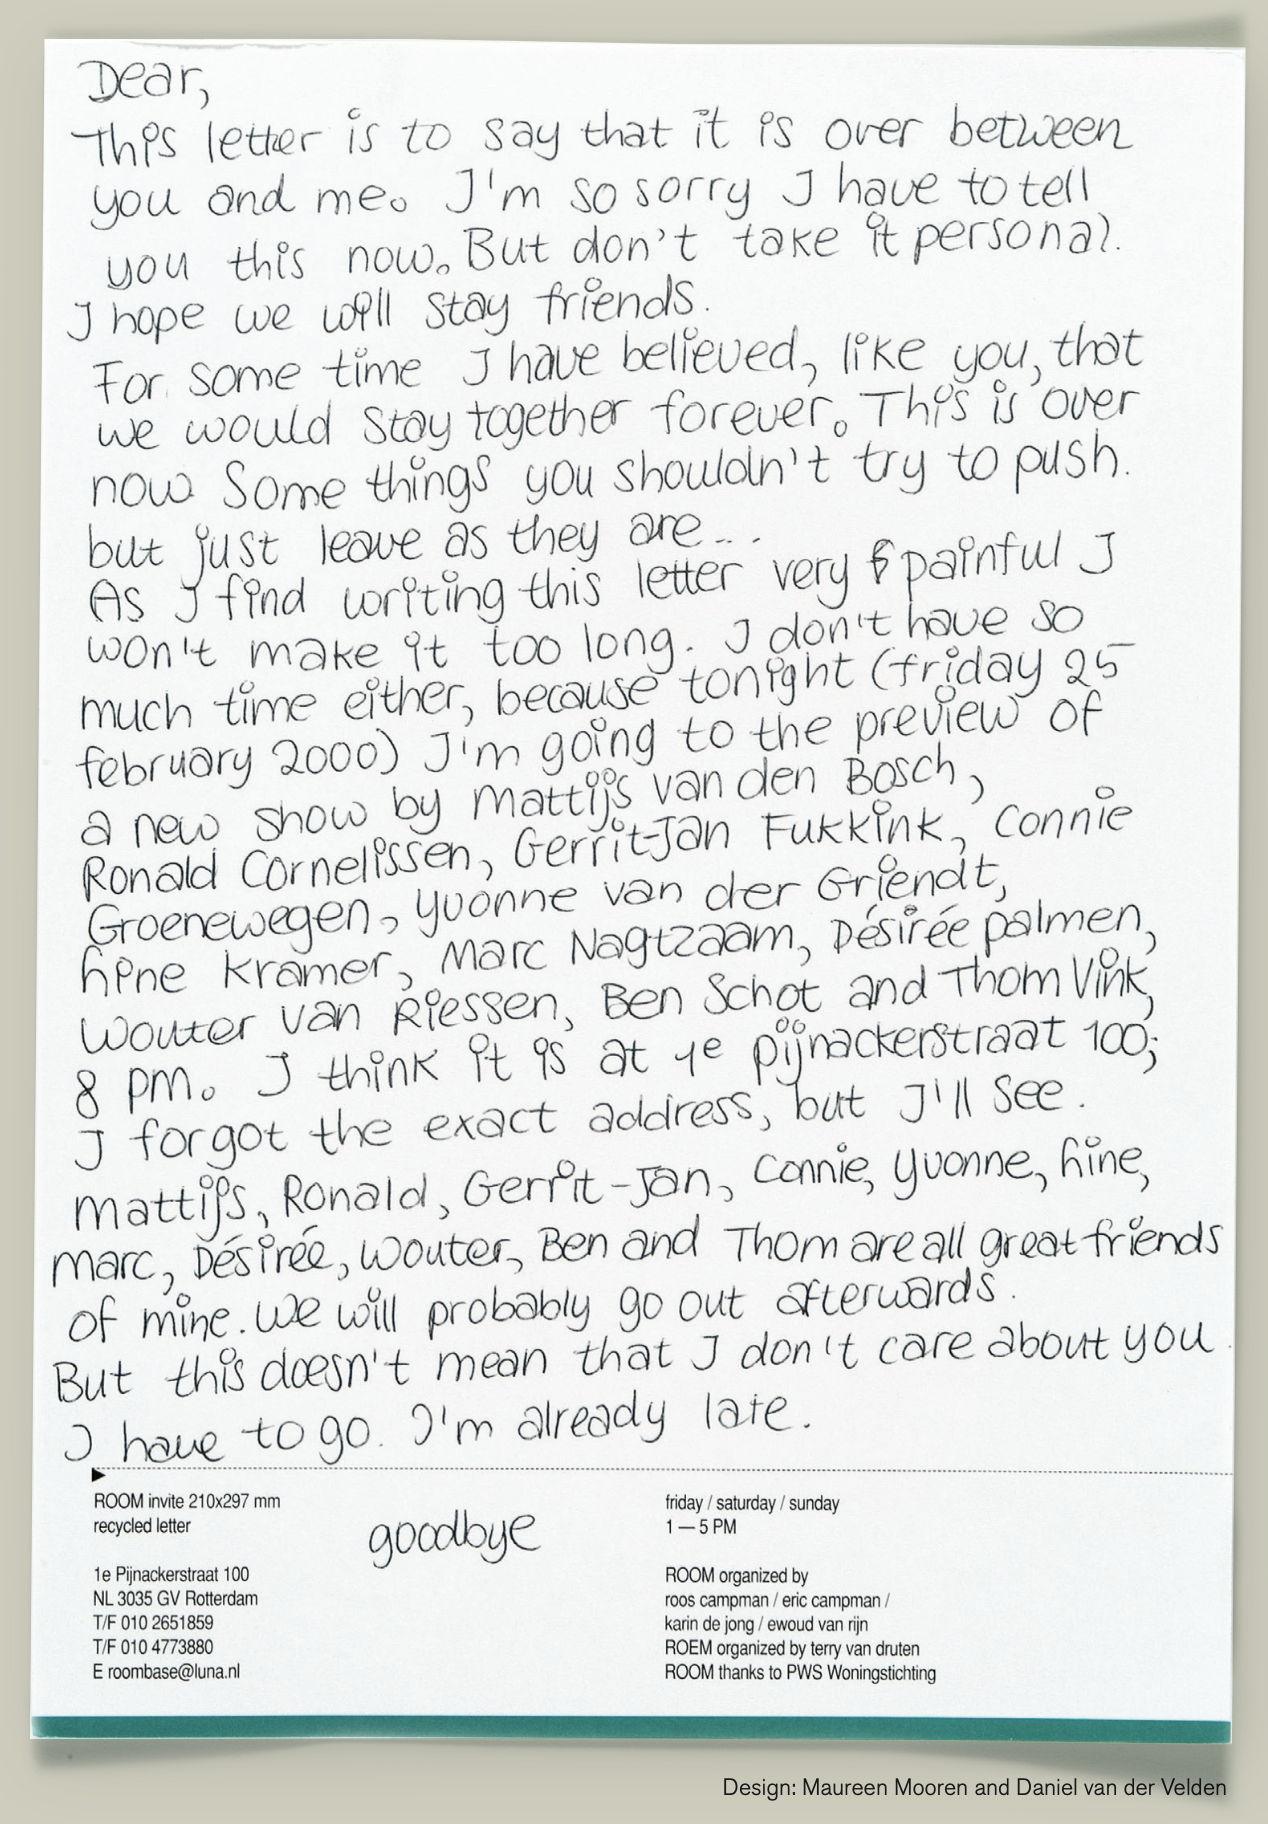 Dear,
This letter is to say that it is over between
you and me. I'm so sorry I have to tell
you this now. But don't take it personal.
I hope we will stay friends.
For some time I have believed, like you, that
we would stay together forever. This is over
now Some things you shouldn't try to push.
but just leave as they are...
As I find writing this letter very painful I
won't make it too long. I don't have so
much time either, because tonight (friday 25
february 2000) I'm going to the preview of
a new show by Mattijs van den Bosch,
Ronald Cornelissen, Gerrit-Jan Fukkink, Connie
Groenewegen, Yvonne van der Griendt,
hine kramer, Marc Nagtzaam, Désirée palmen,
Wouter van Riessen, Ben Schot and Thom Vink,
8 pm. I think it is at 1e pijnackerstraat 100;
I forgot the exact address, but I'll see.
Mattijs, Ronald, Gerrit-Jan, Connie, Yvonne, hine,
Marc, Désirée, Wouter, Ben and Thom are all great friends
of mine. We will probably go out afterwards.
But this doesn't mean that I don't care about you.
I have to go. I'm already late.
goodbye
ROOM invite 210x297 mm
recycled letter
1e Pijnackerstraat 100
NL 3035 GV Rotterdam
T/F 010 2651859
T/F 010 4773880
E roombase@luna.nl
friday / saturday / sunday
1 — 5 PM
ROOM organized by
roos campman / eric campman /
karin de jong / ewoud van rijn
ROEM organized by terry van druten
ROOM thanks to PWS Woningstichting
Design: Maureen Mooren and Daniel van der Velden